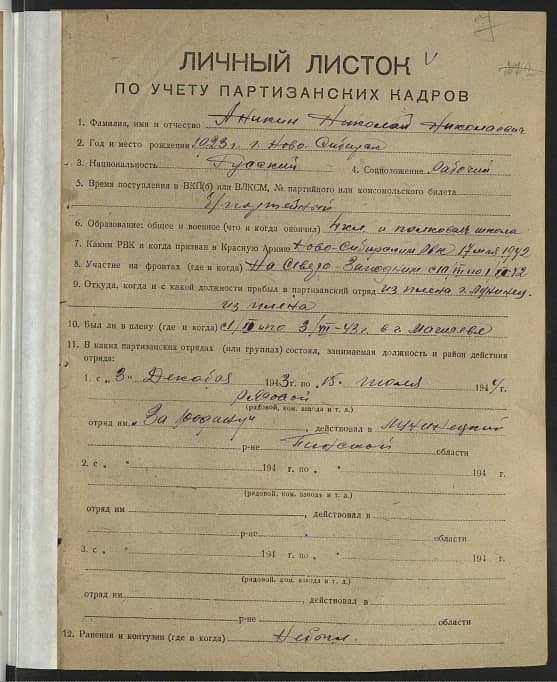 7
ЛИЧНЫЙ ЛИСТОК
ПО УЧЕТУ ПАРТИЗАНСКИХ КАДРОВ
1. Фамилия, имя и отчество Аникин Николай Николаевич
2. Год и место рождения 1923 г. г. Ново-Сибирск
3. Национальность Русский 4. Соцположение Рабочий
5. Время поступления в ВКП(б) или ВЛКСМ, № партийного или комсомольского билета
Б/партейный
6. Образование: общее и военное (что и когда окончил) 4 кл. и полковая школа
7. Каким РВК и когда призван в Красную Армию Ново-Сибирским Рвк 17 мая 1942
8. Участие на фронтах (где и когда) На Северо-Западном с
9. Откуда, когда и с какой должности прибыл в партизанский отряд из плена г. Лунинец
из плена
10. Был ли в плену (где и когда) по 3/XII-43 г. в г.
11. В каких партизанских отрядах (или группах) состоял, занимаемая должность и район действия
отряда:
1. с „3“ Декабря 1943 г. по „15“ июля 1944 г.
рядовой
(рядовой, ком. взвода и т. д.)
отряд им. „За Родину“, действовал в Лунинецкий
р-не Пинской области
2. с „ “ 194 г. по „ “ 194 г.
(рядовой, ком. взвода и т. д.)
отряд им , действовал в
р-не области
3. с „ “ 194 г. по „ “ 194 г.
(рядовой, ком. взвода и т. д.)
отряд им , действовал в
р-не области
12. Ранения и контузии (где и когда)